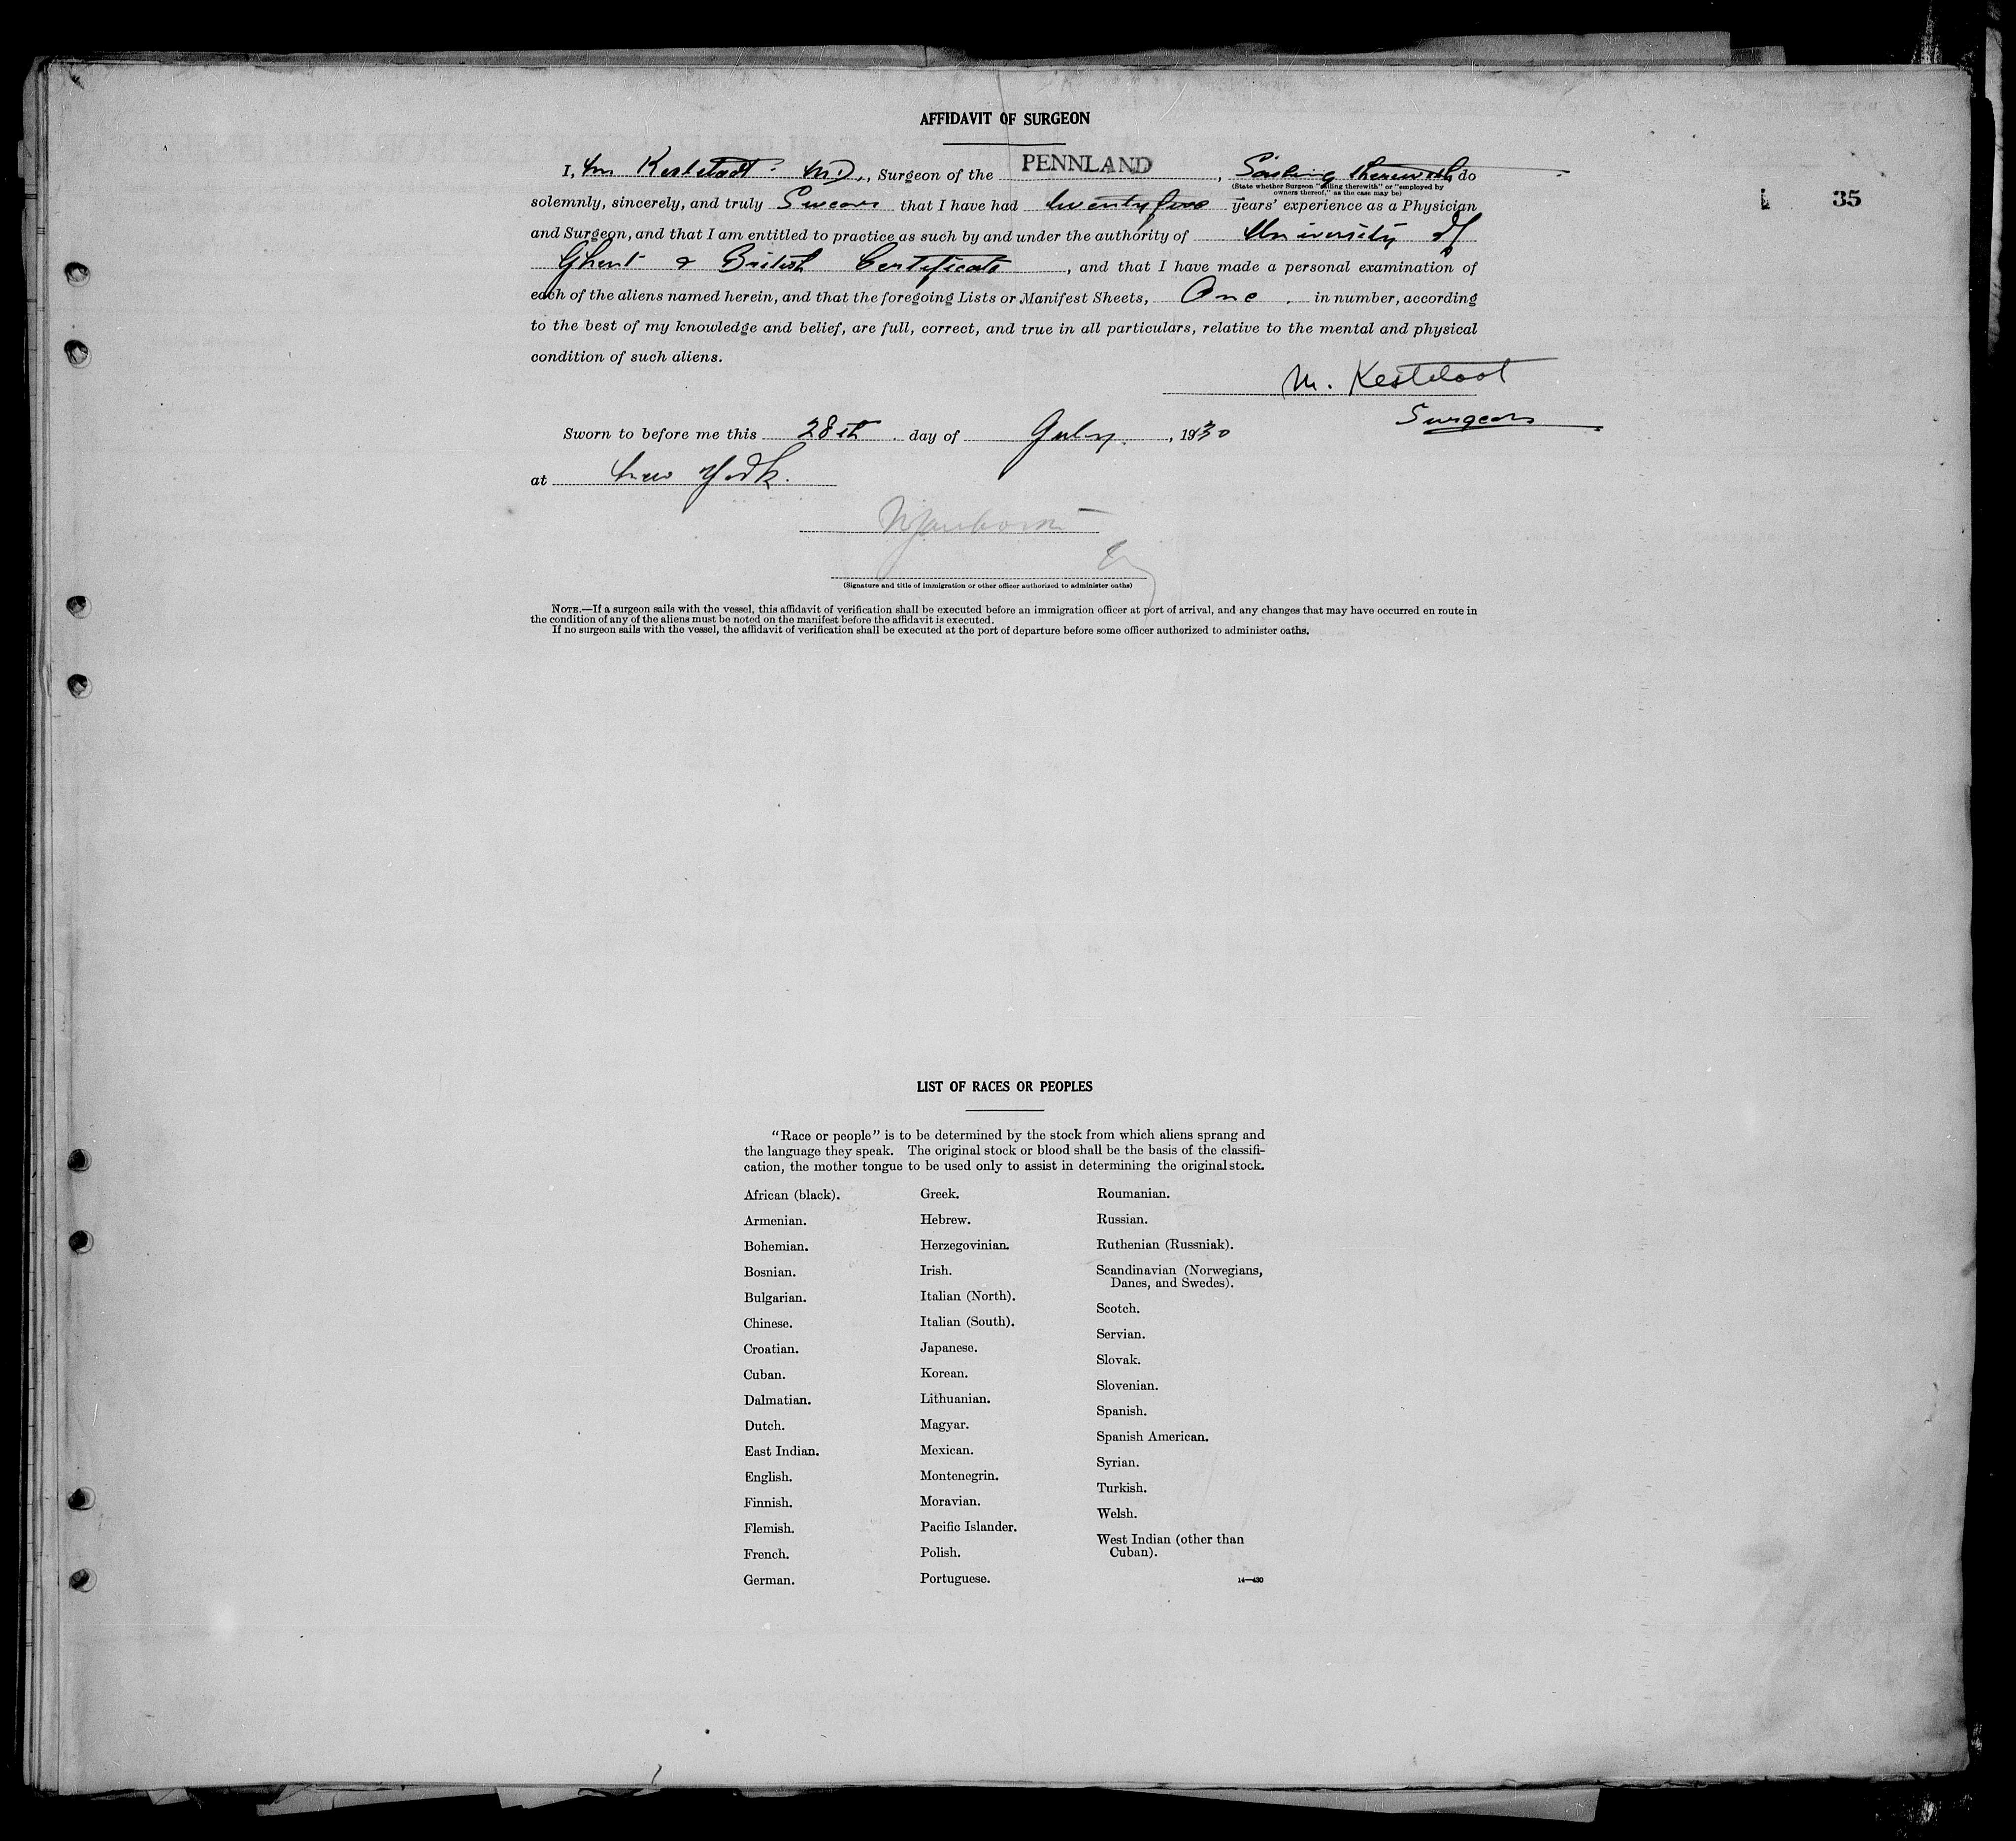 AFFIDAVIT OF SURGEON
I, M. Kesteloot M.D., Surgeon of the PENNLAND, Sailing therewith do
(State whether Surgeon "sailing therewith" or "employed by
owners thereof," as the case may be)
35
solemnly, sincerely, and truly Swear that I have had twenty five years' experience as a Physician
and Surgeon, and that I am entitled to practice as such by and under the authority of University of
Ghent & British Certificate, and that I have made a personal examination of
each of the aliens named herein, and that the foregoing Lists or Manifest Sheets, One in number, according
to the best of my knowledge and belief, are full, correct, and true in all particulars, relative to the mental and physical
condition of such aliens.
M. Kesteloot
Surgeon
Sworn to before me this 28th day of July, 1930
at New York.
(Signature and title of immigration or other officer authorized to administer oaths)
NOTE.—If a surgeon sails with the vessel, this affidavit of verification shall be executed before an immigration officer at port of arrival, and any changes that may have occurred en route in
the condition of any of the aliens must be noted on the manifest before the affidavit is executed.
If no surgeon sails with the vessel, the affidavit of verification shall be executed at the port of departure before some officer authorized to administer oaths.
LIST OF RACES OR PEOPLES
"Race or people" is to be determined by the stock from which aliens sprang and
the language they speak. The original stock or blood shall be the basis of the classifi-
cation, the mother tongue to be used only to assist in determining the original stock.
African (black).
Armenian.
Bohemian.
Bosnian.
Bulgarian.
Chinese.
Croatian.
Cuban.
Dalmatian.
Dutch.
East Indian.
English.
Finnish.
Flemish.
French.
German.
Greek.
Hebrew.
Herzegovinian.
Irish.
Italian (North).
Italian (South).
Japanese.
Korean.
Lithuanian.
Magyar.
Mexican.
Montenegrin.
Moravian.
Pacific Islander.
Polish.
Portuguese.
Roumanian.
Russian.
Ruthenian (Russniak).
Scandinavian (Norwegians,
Danes, and Swedes).
Scotch.
Servian.
Slovak.
Slovenian.
Spanish.
Spanish American.
Syrian.
Turkish.
Welsh.
West Indian (other than
Cuban).
14—430